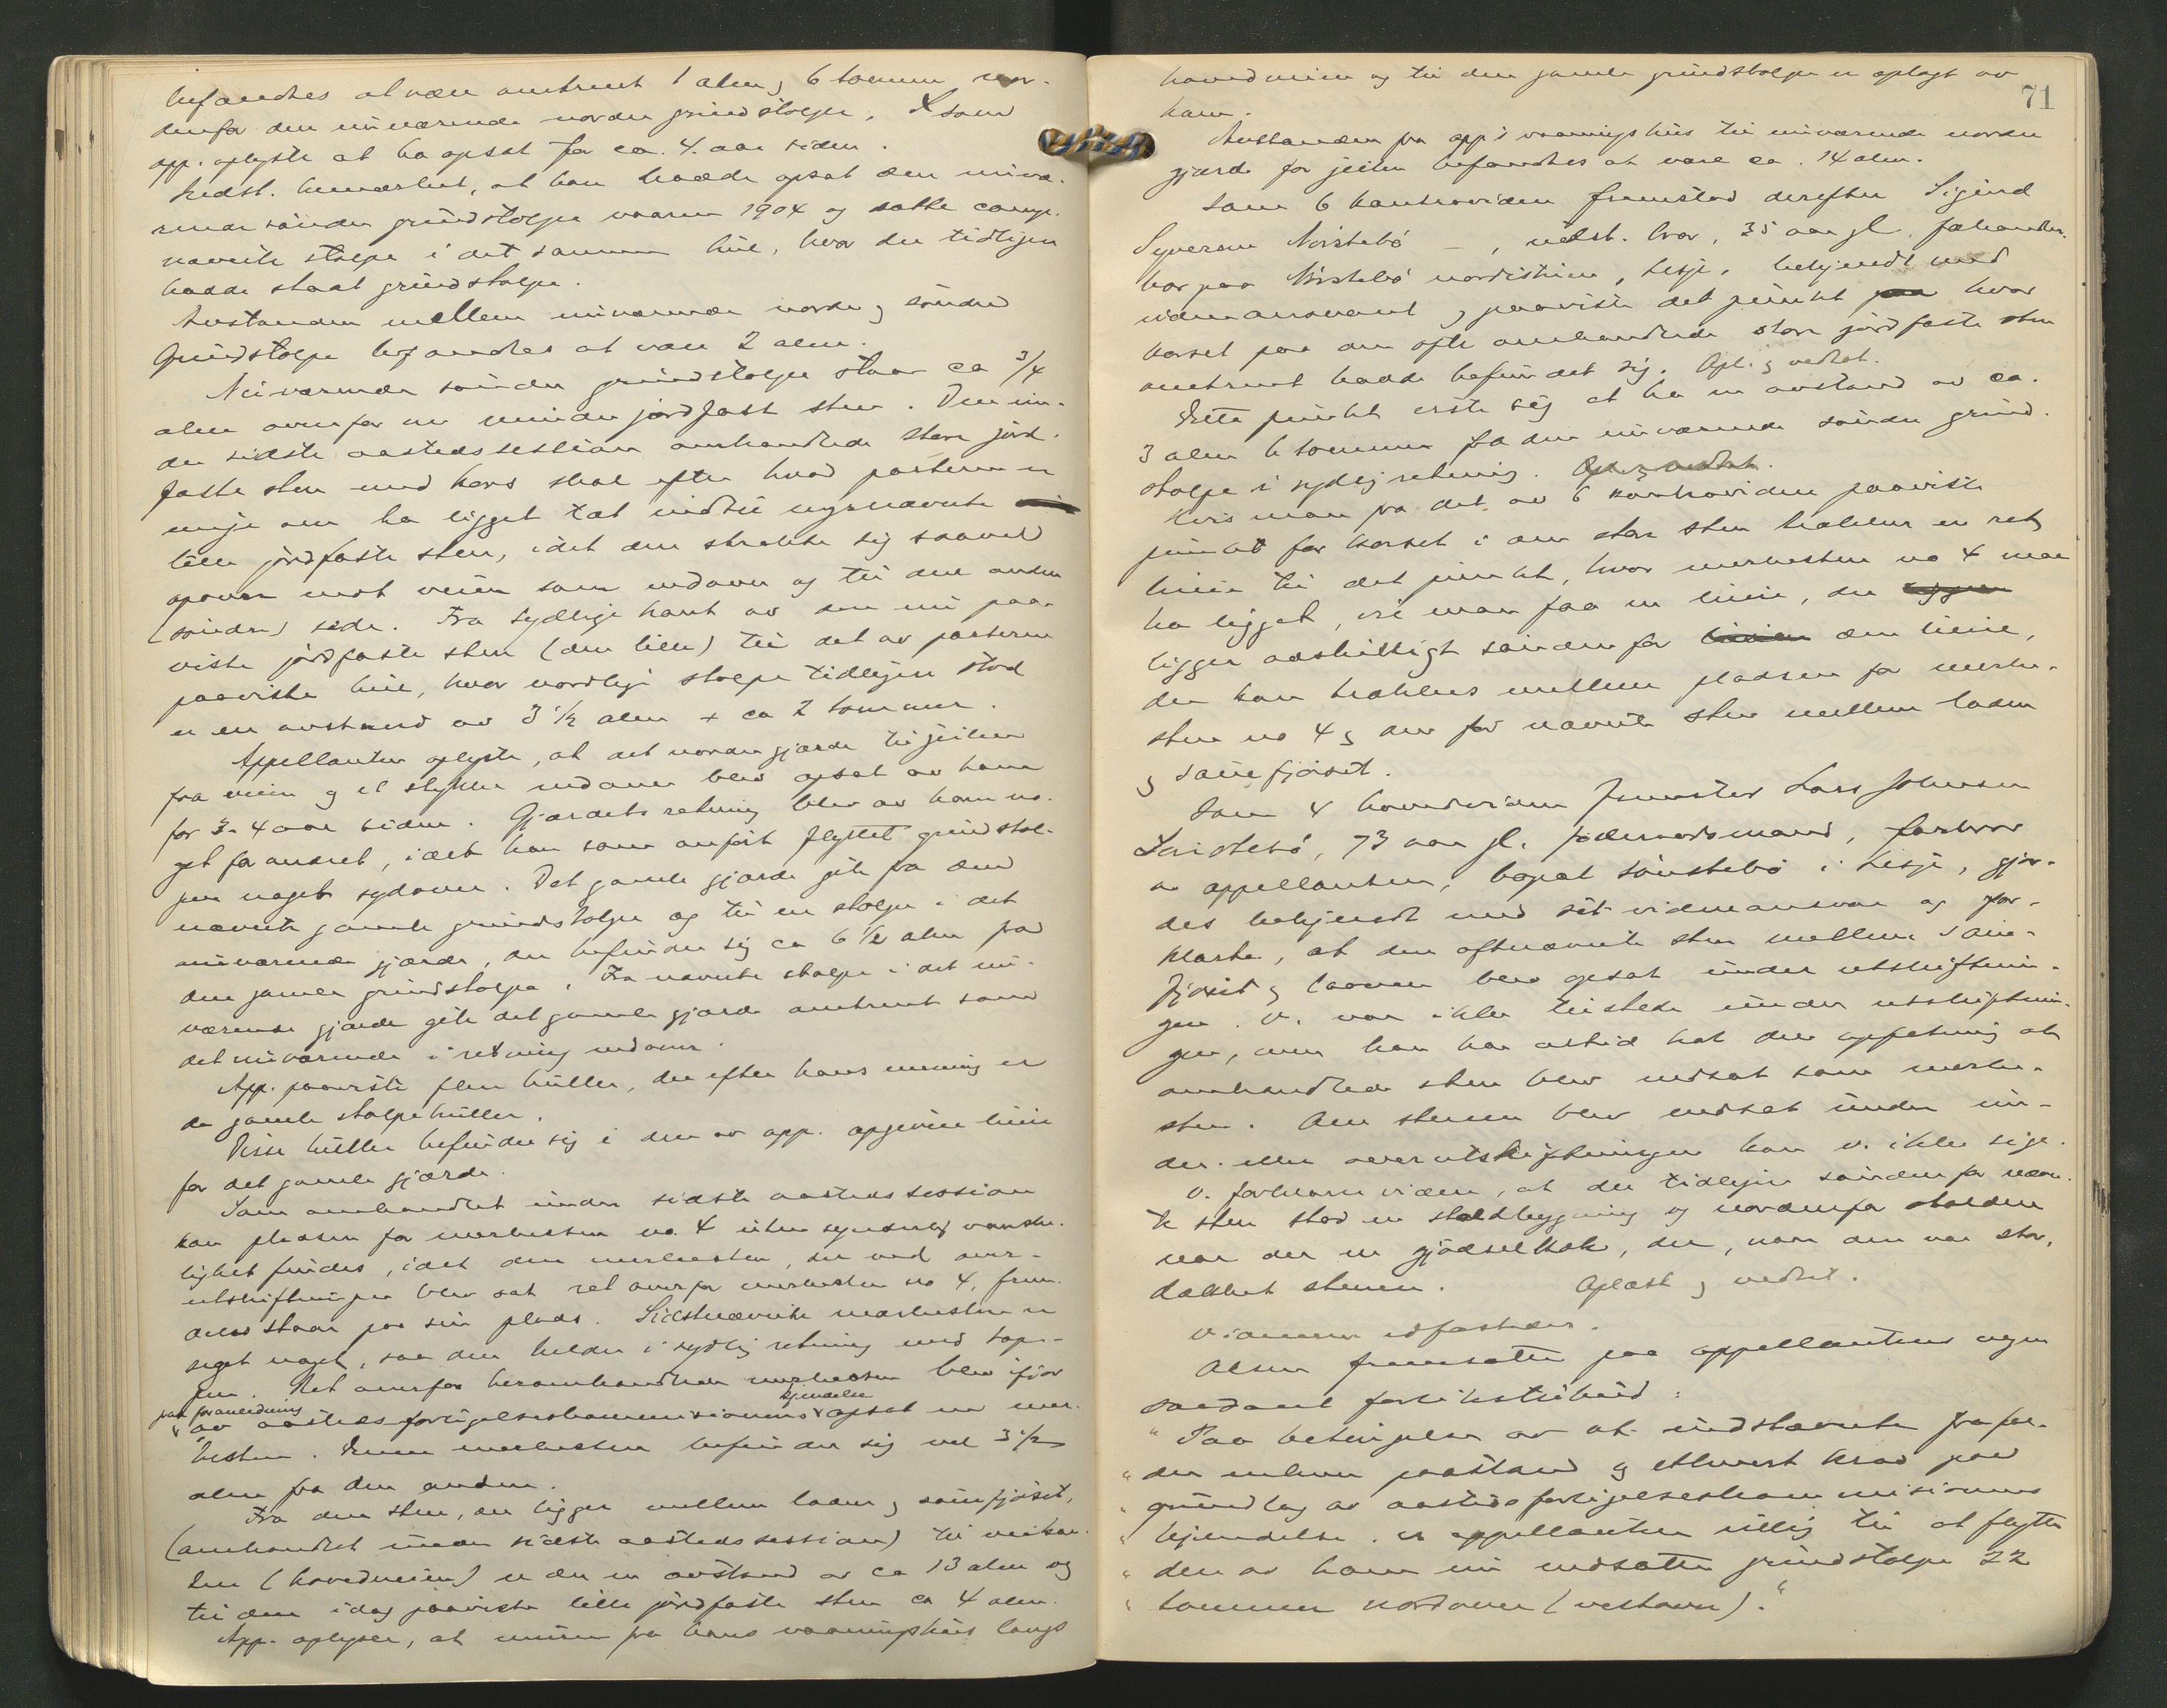 befandtes at være omtrent 1 alen, 6 tommer nor-
denfor den nuværende nordre grindstolpe, som
app. oplyste at ha opsat for ca. 4. aar siden.
Indst. bemerket, at han hadde opsat den nuvæ-
rende søndre grindstolpe vaaren 1904 og satte omge.
nævnte stolpe i det samme hul, hvor der tidligere
hadde staat grindstolpe.
Avstanden mellem nuværende nordre og søndre
Grindstolpe befandtes at være 2 alen.
Nuværende søndre grindstolpe staar ca 3/4
alen ovenfor en mindre jordfast sten. Den un-
der sidste aastedssession omhandlede store jord-
faste sten med kors skal efter hvad parterne er
enige om ha ligget tæt indtil nysnævnte
lille jordfaste sten, idet den strakte sig saavel
opover mot veien som nedover og til den anden
(søndre) side. Fra sydlige kant av den nu paa-
viste jordfaste sten (den lille) til det av parterne
paaviste hul, hvor nordlige stolpe tidligere stod
er en avstand av 3 1/2 alen + ca 2 tommer.
Appellanten oplyste, at det nordre gjærde til geilen
fra veien og et stykke nedover blev opsat av ham
for 3-4 aar siden. Gjærdets retning blev av ham no-
get forandret, idet han som anført flyttet grindstol-
pen noget sydover. Det gamle gjærde gik fra den
nævnte gamle grindstolpe og til en stolpe i det
nuværende gjærde, der befinder sig ca 6 1/2 alen fra
den gamle grindstolpe. Fra nævnte stolpe i det nu-
værende gjærde gik det gamle gjærde omtrent som
det nuværende i retning nedover.
App. paaviste flere huller, der efter hans mening er
de gamle stolpehuller.
Disse huller befinder sig i den av app. opgivne linie
for det gamle gjærde.
Som omhandlet under sidste aastedssession
kan pladsen for merkesten no. 4 uten synderlig vanske-
lighet findes, idet den merkesten, der ved over-
utskiftningen blev sat ret overfor merkesten no 4, frem-
deles staar paa sin plads. Sidstnævnte merkesten er
seget noget, saa den helder i sydlig retning med top-
pen. Ret overfor heromhandlede merkesten blev ifjor
paa foranledning av aastedsforligelseskommisionens kjendelse opsat en mer-
kesten. Denne merkesten befinder sig vel 3 1/2
alen fra den anden.
Fra den sten, der ligger mellem laden og sauefjøset,
(omhandlet under sidste aastedssession) til veikan-
ten (hovedveien) er der en avstand av ca 13 alen og
til den idag paaviste lille jordfaste sten ca 4 alen.
App. oplyser, at muren fra hans vaaningshus langs
71
hovedveien og til den gamle grindstolpe er oplagt av
ham.
Avstanden fra app's vaaningshus til nuværende nordre
gjærde for geilen befandtes at være ca. 14 alen.
Som 6 kontravidne fremstod derefter Sigurd
Syversen Norstebø –, indst. bror, 35 aar gl. fæhandler
bor paa Norstebø nordistuen, Lesje, bekjendt med
vidneansvaret og paaviste det punkt hvor
korset paa den ofte omhandlede store jordfaste sten
omtrent hadde befundet sig. Opl. og vedtat.
Dette punkt viste sig at ha en avstand av ca.
3 alen 6 tommer fra den nuværende søndre grind-
stolpe i sydlig retning.
Hvis man fra det av 6 kontravidne paaviste
punkt for korset i den store sten trækker en ret
linie til det punkt, hvor merkesten no 4 maa
ha ligget, vil man faa en linie, der
ligger adskilligt søndenfor den linie,
der kan trækkes mellem pladsen for merke-
sten no 4 og den før nævnte sten mellem laden
og sauefjøset.
Som 4 hovedvidne fremstod Lars Johnsen
73 aar gl. føderaadsmand, farbror
av appellanten, bopæl Sönstebø i Lesje, gjor-
des bekjendt med sit vidneansvar og for-
klarte, at den oftnævnte sten mellem saue-
fjøset og laaven blev opsat under utskiftnin-
gen. V. var ikke tilstede under utskiftnin-
gen, men han har altid hat den oppfatning at
omhandlede sten blev nedsat som merke-
sten. Om stenen blev nedsat under un-
der- eller overutskiftningen kan v. ikke sige.
V. forklarer videre, at der tidligere søndenfor nævn-
te sten stod en staldbygning og nordenfor stalden
var der en gjødselkok, der, naar den var stor,
dækket stenen. Oplæst og vedtat.
Vidnerne edfæstedes.
Olsen fremsatte paa appellantens vegne
saadant forlikstilbud:
" Paa betingelse av at indstævnte frafal-
" der enhver paastand og ethvert krav paa
" grundlag av aastedsforligelseskommisionens
" kjendelse er appellanten villig til at flytte
" den av ham nu nedsatte grindstolpe 22
" tommer nordover (vestover)."